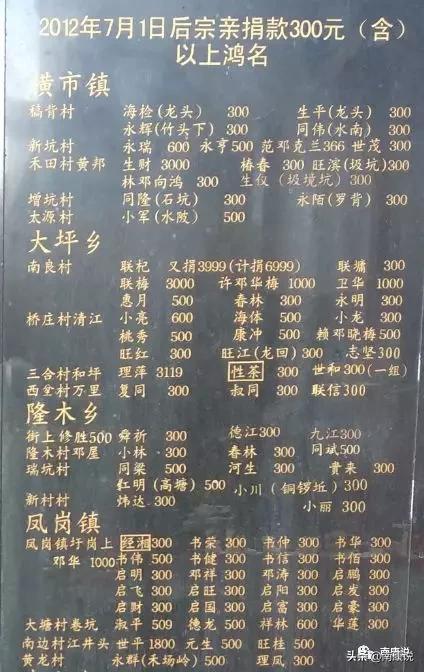 2012年7月1日后宗亲捐款300元（含）
以上鸿名
横市镇
稿背村 海检(龙头) 300 生平(龙头) 300
永辉(竹头下) 300 同伟(水南) 300
新坑村 永瑞 600 永亨500 范邓克兰366 世茂 300
禾田村黄邦 生财 3000 椿春 300 旺滨(圾坑)300
林邓向鸿 300 生仪(圾境坑) 300
增坑村 同隆(石坑) 300 永陌(罗背) 300
太源村 小军(水陂) 500
大坪乡
南良村 联杞 又捐3999(计捐6999) 联墉 300
联梅 3000 许邓华梅 1000 卫华 1000
惠月 500 春林 300 永明 300
桥庄村清江 小亮 600 海体 500 小龙 300
桃秀 500 康冲 500 赖邓晓梅 500
旺红 300 旺江(龙回) 300 志坚300
三合村和坪 理萍 3119 性茶 300 世和300(一组)
西坌村万里 复同 300 叔同 300 联信300
隆木乡
街上 修胜500 舜祈 300 德江300 九江300
隆木村邓屋 小林 300 春林 300 同斌500
瑞坑村 同梁 500 河生 300 贵来 300
红明(高塘) 500 小川(铜锣坵) 300
新村村 炜达 300 小丽 300
凤岗镇
凤岗镇圩岗上 经湘300 书荣 300 书仲 300 书华 300
邓华 1000 书伟 500 书健 300 书信 300 书佰 300
启明 300 邓祥 300 邓涛 300 启鹏 300
启飞 300 启旺 300 启阳 300 启发 300
启财 300 启国 300 启富 300 启豪 300
大塘村卷坑 淑平 509 德龙 500 祥林 600 华莲 300
南边村江井头 世平 1800 元生 500 旺桂 500
黄龙村 永群(禾场岭) 500 理凤 300
南唐说
头条@南康说